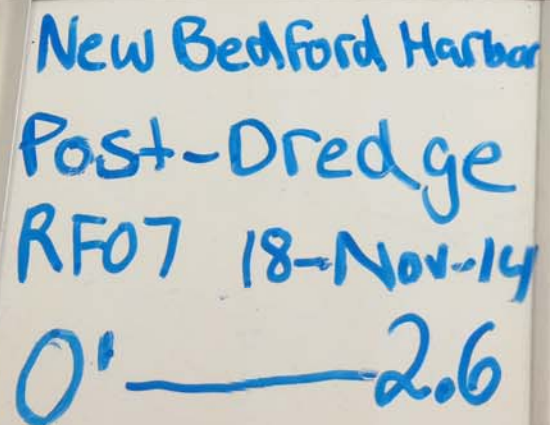 New Bedford Harbor
Post-Dredge
RF07 18-Nov-14
0' — 2.6